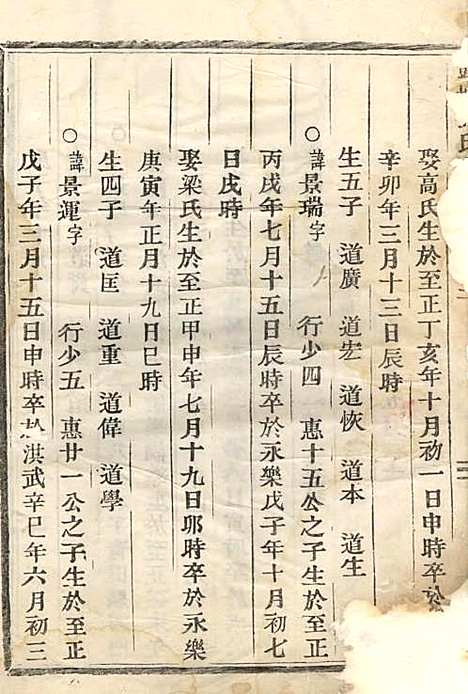 娶高氏生於至正丁亥年十月初一日申時卒於
辛卯年三月十三日辰時
生五子 道廣 道宏 道恢 道本 道生
○諱景瑞字 行少四 惠十五公之子生於至正
丙戌年七月十五日辰時卒於永樂戊子年十月初七
日戌時
娶梁氏生於至正甲申年七月十九日卯時卒於永樂
庚寅年正月十九日巳時
生四子 道匡 道重 道偉 道學
○諱景運字 行少五 惠廿一公之子生於至正
戊子年三月十五日申時卒於洪武辛巳年六月初三